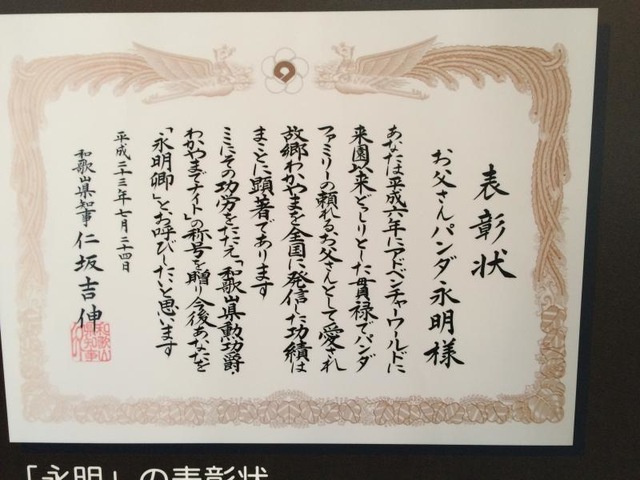 表彰状
お父さんパンダ永明様
あなたは平成六年にアドベンチャーワールドに
来園以来どっしりとした貫禄でパンダ
ファミリーの頼れるお父さんとして愛され
故郷わかやまを全国に発信した功績は
まことに顕著であります
ここにその功労をたたえ「和歌山県勲功爵・
わかやまでナイト」の称号を贈り今後あなたを
「永明卿」とお呼びしたいと思います
平成二十三年七月二十四日
和歌山県知事 仁坂吉伸
和歌山県知事
「永明」の表彰状